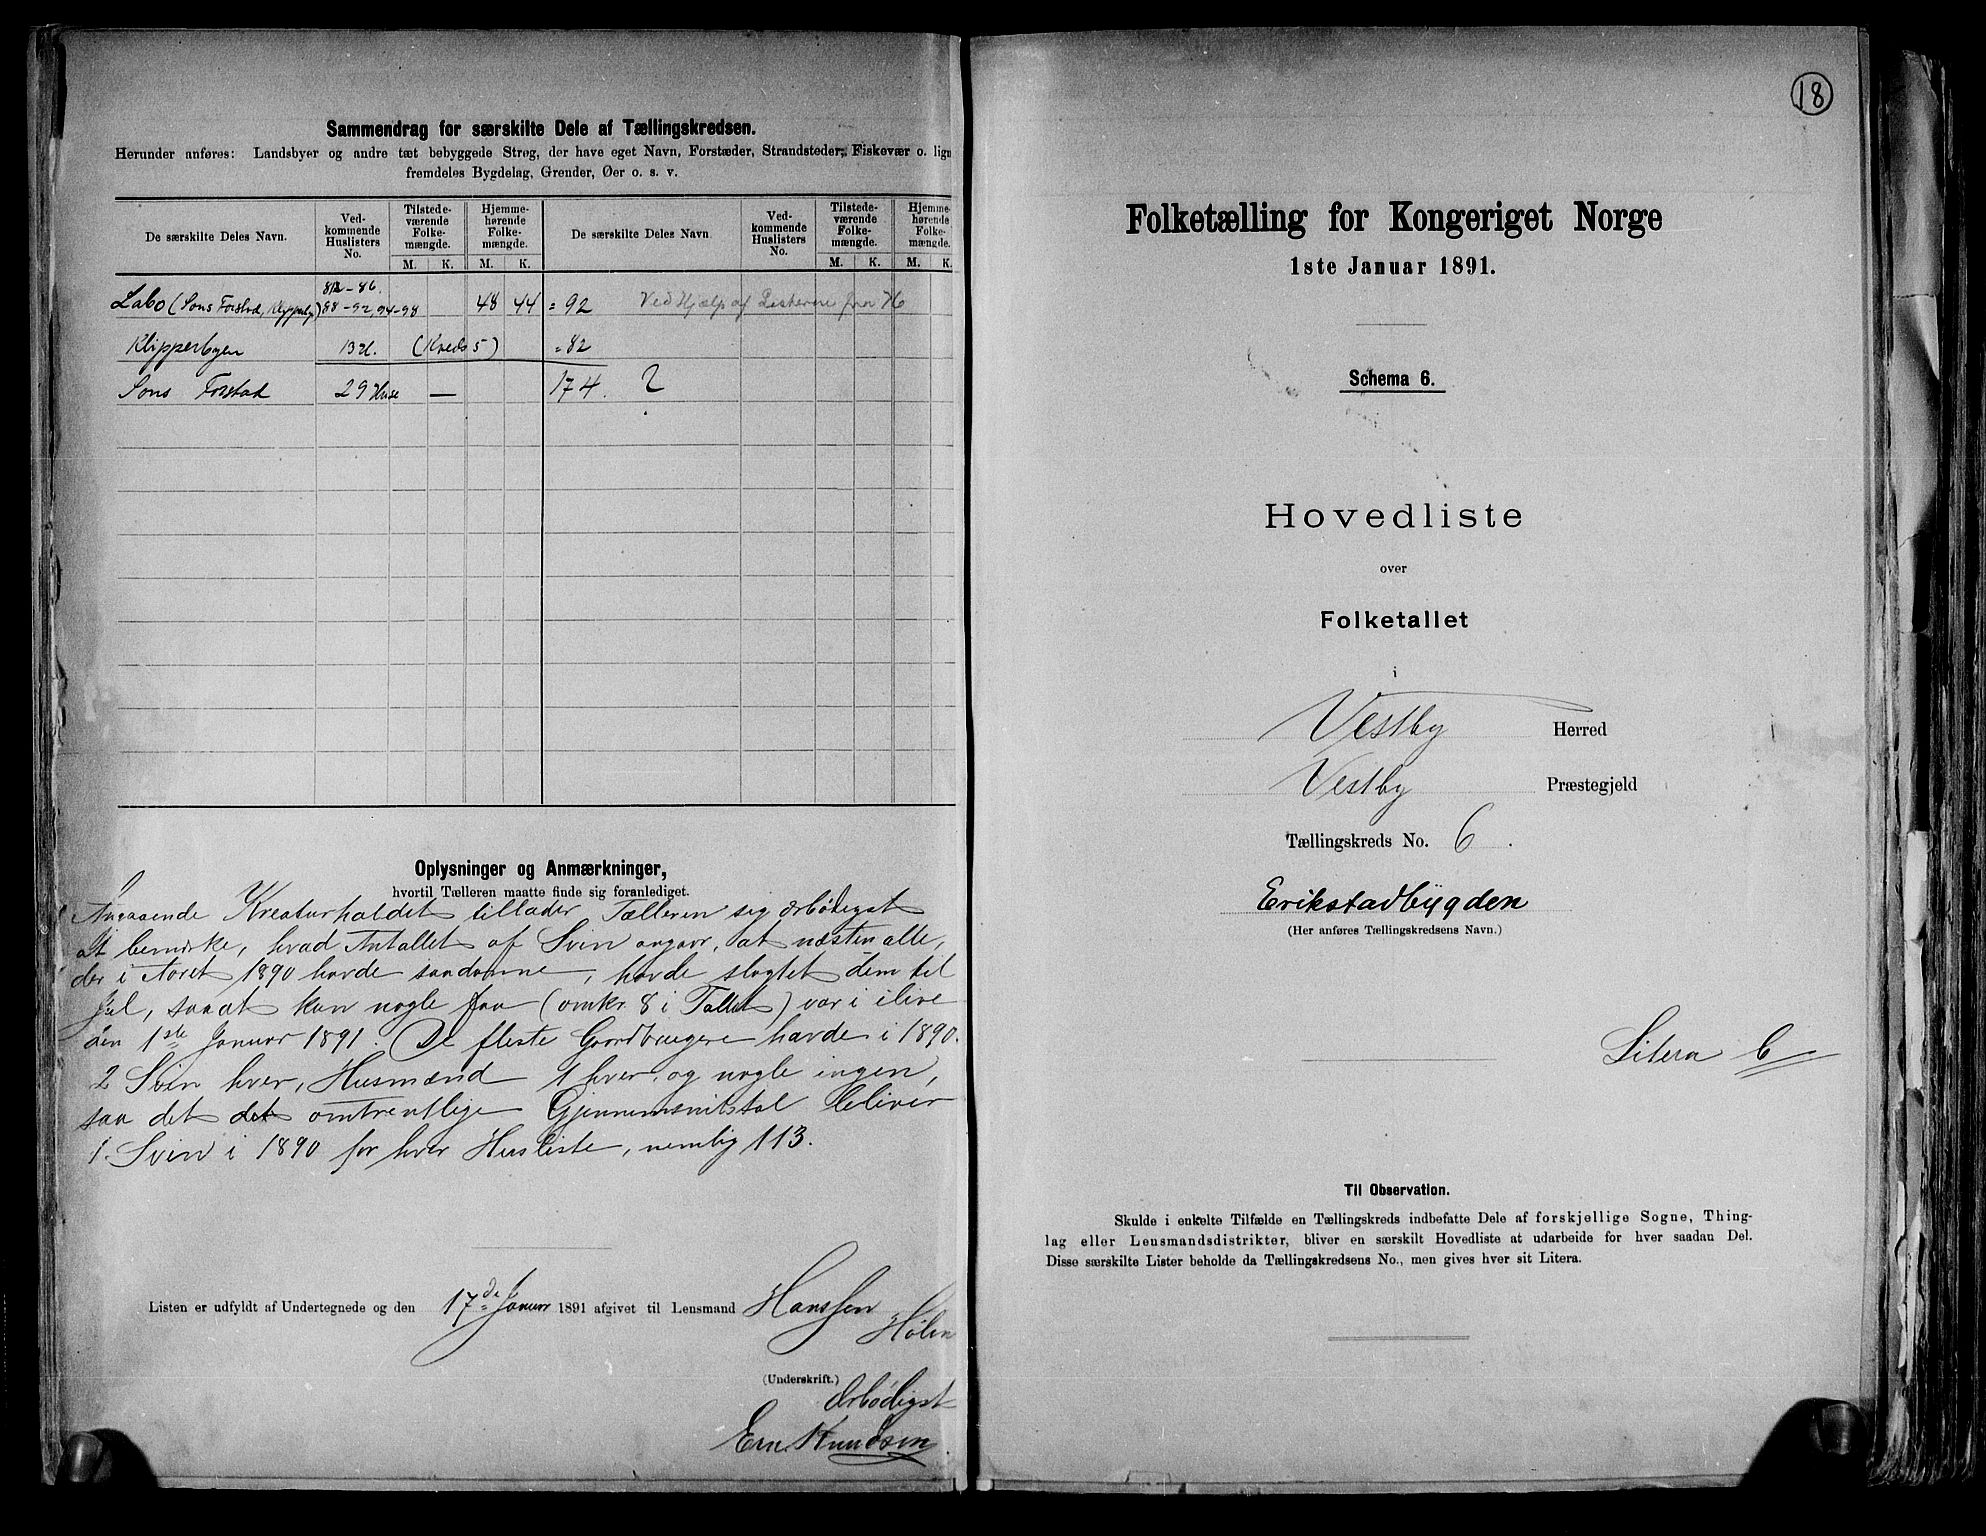 Sammendrag for særskilte Dele af Tællingskredsen.
Herunder anføres: Landsbyer og andre tæt bebyggede Strøg, der have eget Navn, Forstæder, Strandsteder, Fiskevær o. lign
fremdeles Bygdelag, Grender, Øer o. s. v.
De særskilte Deles Navn. Ved-kommende Huslisters No. Tilstede-værende Folke-mængde. M. K. Hjemme-hørende Folke-mængde. M. K. De særskilte Deles Navn Ved-kommende Huslisters No. Tilstede-værende Folke-mængde. M. K. Hjemme-hørende Folke-mængde. M. K.
Labo (Sons Forstad, Klipperby) 82-86. 88-92, 94-98 48 44 = 92 Ved Hjælp af Listerne fra 76
Klipperbyen 13 H. (Kreds 5) = 82
Sons Forstad 29 Huse — 174. ?
Oplysninger og Anmærkninger,
hvortil Tælleren maatte finde sig foranlediget.
Angaaende Kreaturholdet tillader Tælleren sig ærbødigst
at bemærke, hvad Antallet af Svin angaar, at næsten alle,
der i Aaret 1890 havde saadanne, havde slagtet dem til
Jul, saaat kun nogle faa (omkr. 8 i Tallet) var i live
den 1ste Januar 1891. De fleste Gaardbrugere havde i 1890.
2 Svin hver, Husmænd 1 hver, og nogle ingen,
saa det det omtrentlige Gjennemsnitstal bliver
1. Svin i 1890 for hver Husliste, nemlig 113.
Listen er udfyldt af Undertegnede og den 17de Januar 1891 afgivet til Lensmand Hanssen
Hølen
(Underskrift.)
Ærbødigst
Ern. Knudsen
18
Folketælling for Kongeriget Norge
1ste Januar 1891.
Schema 6.
Hovedliste
over
Folketallet
i
Vestby Herred
Vestby Præstegjeld
Tællingskreds No. 6.
Erikstadbygden
(Her anføres Tællingskredsens Navn.)
Litera C
Til Observation.
Skulde i enkelte Tilfælde en Tællingskreds indbefatte Dele af forskjellige Sogne, Thing-
lag eller Lensmandsdistrikter, bliver en særskilt Hovedliste at udarbeide for hver saadan Del.
Disse særskilte Lister beholde da Tællingskredsens No., men gives hver sit Litera.